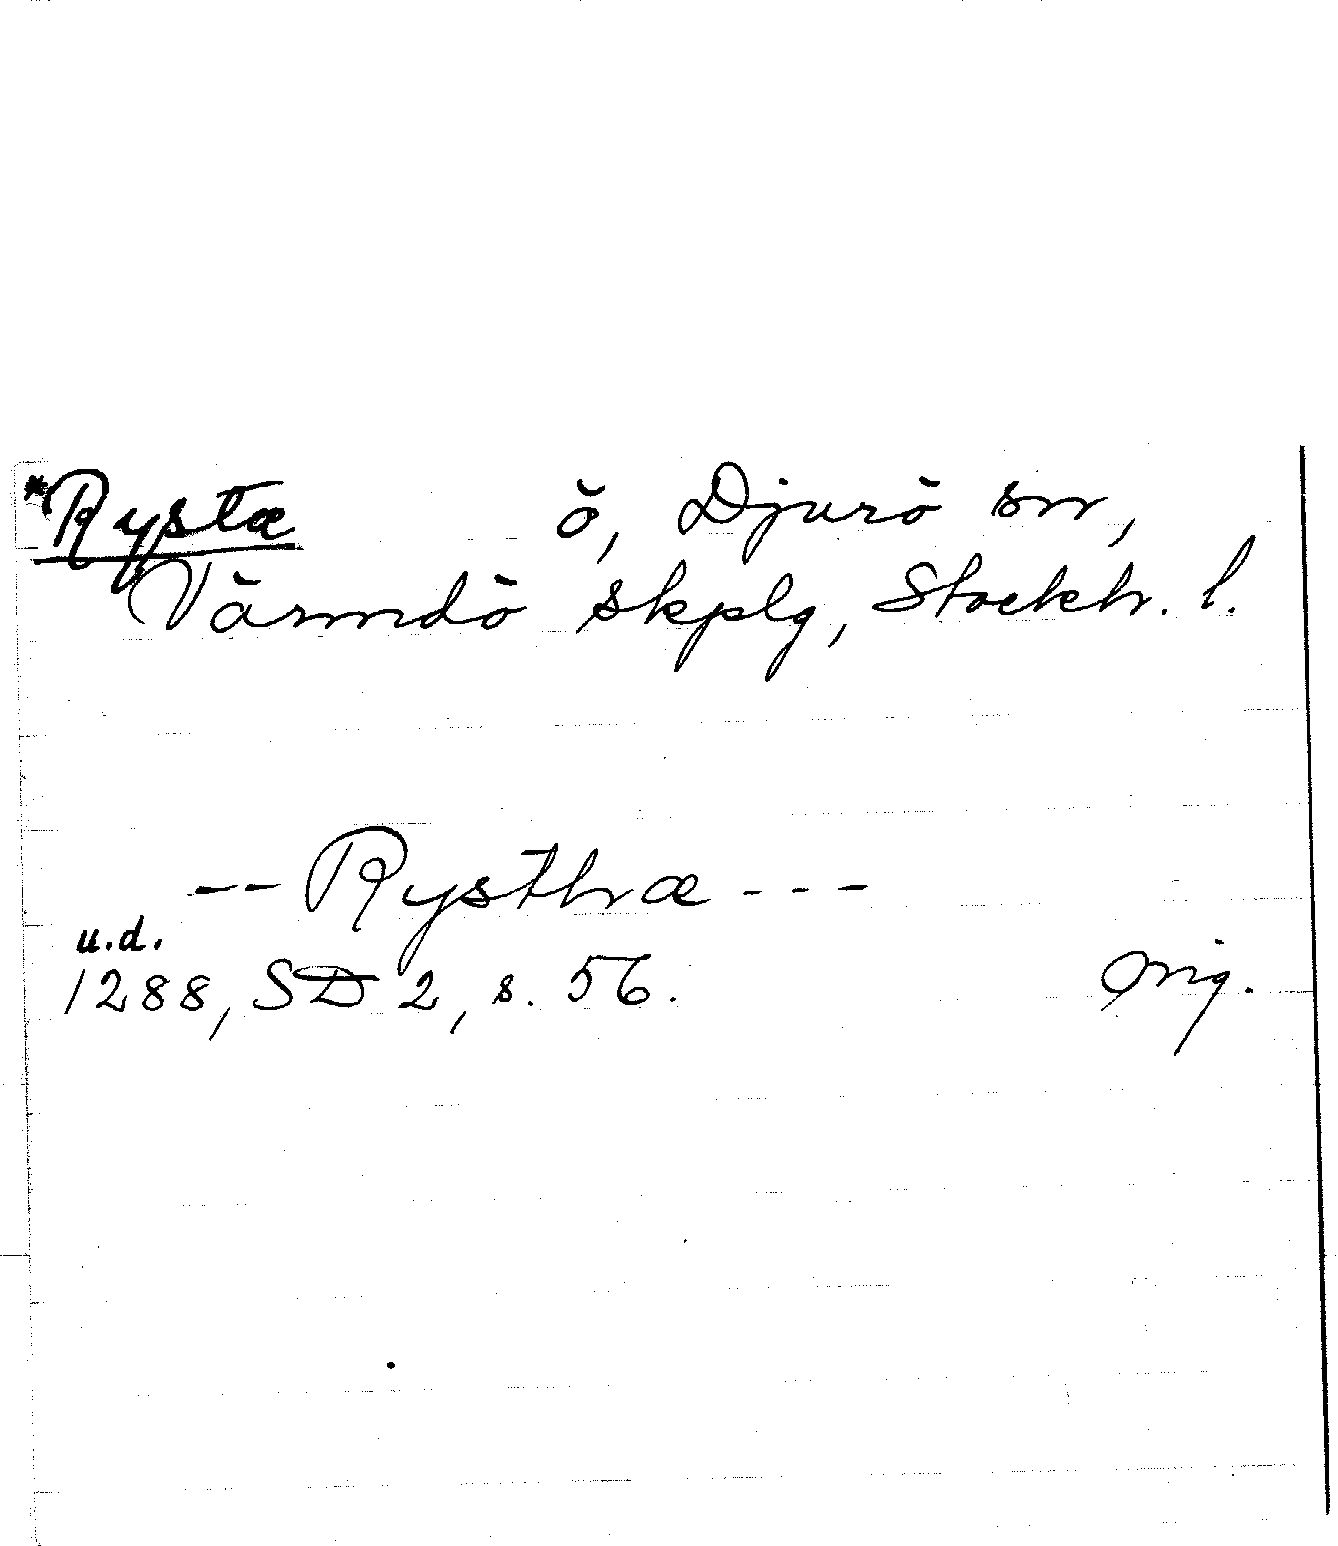 *Rystæ ö, Djurö sn,
Värmdö skplg, Stockh. l.
-- Rysthæ ---
u.d.
1288, SD 2, s. 56. orig.